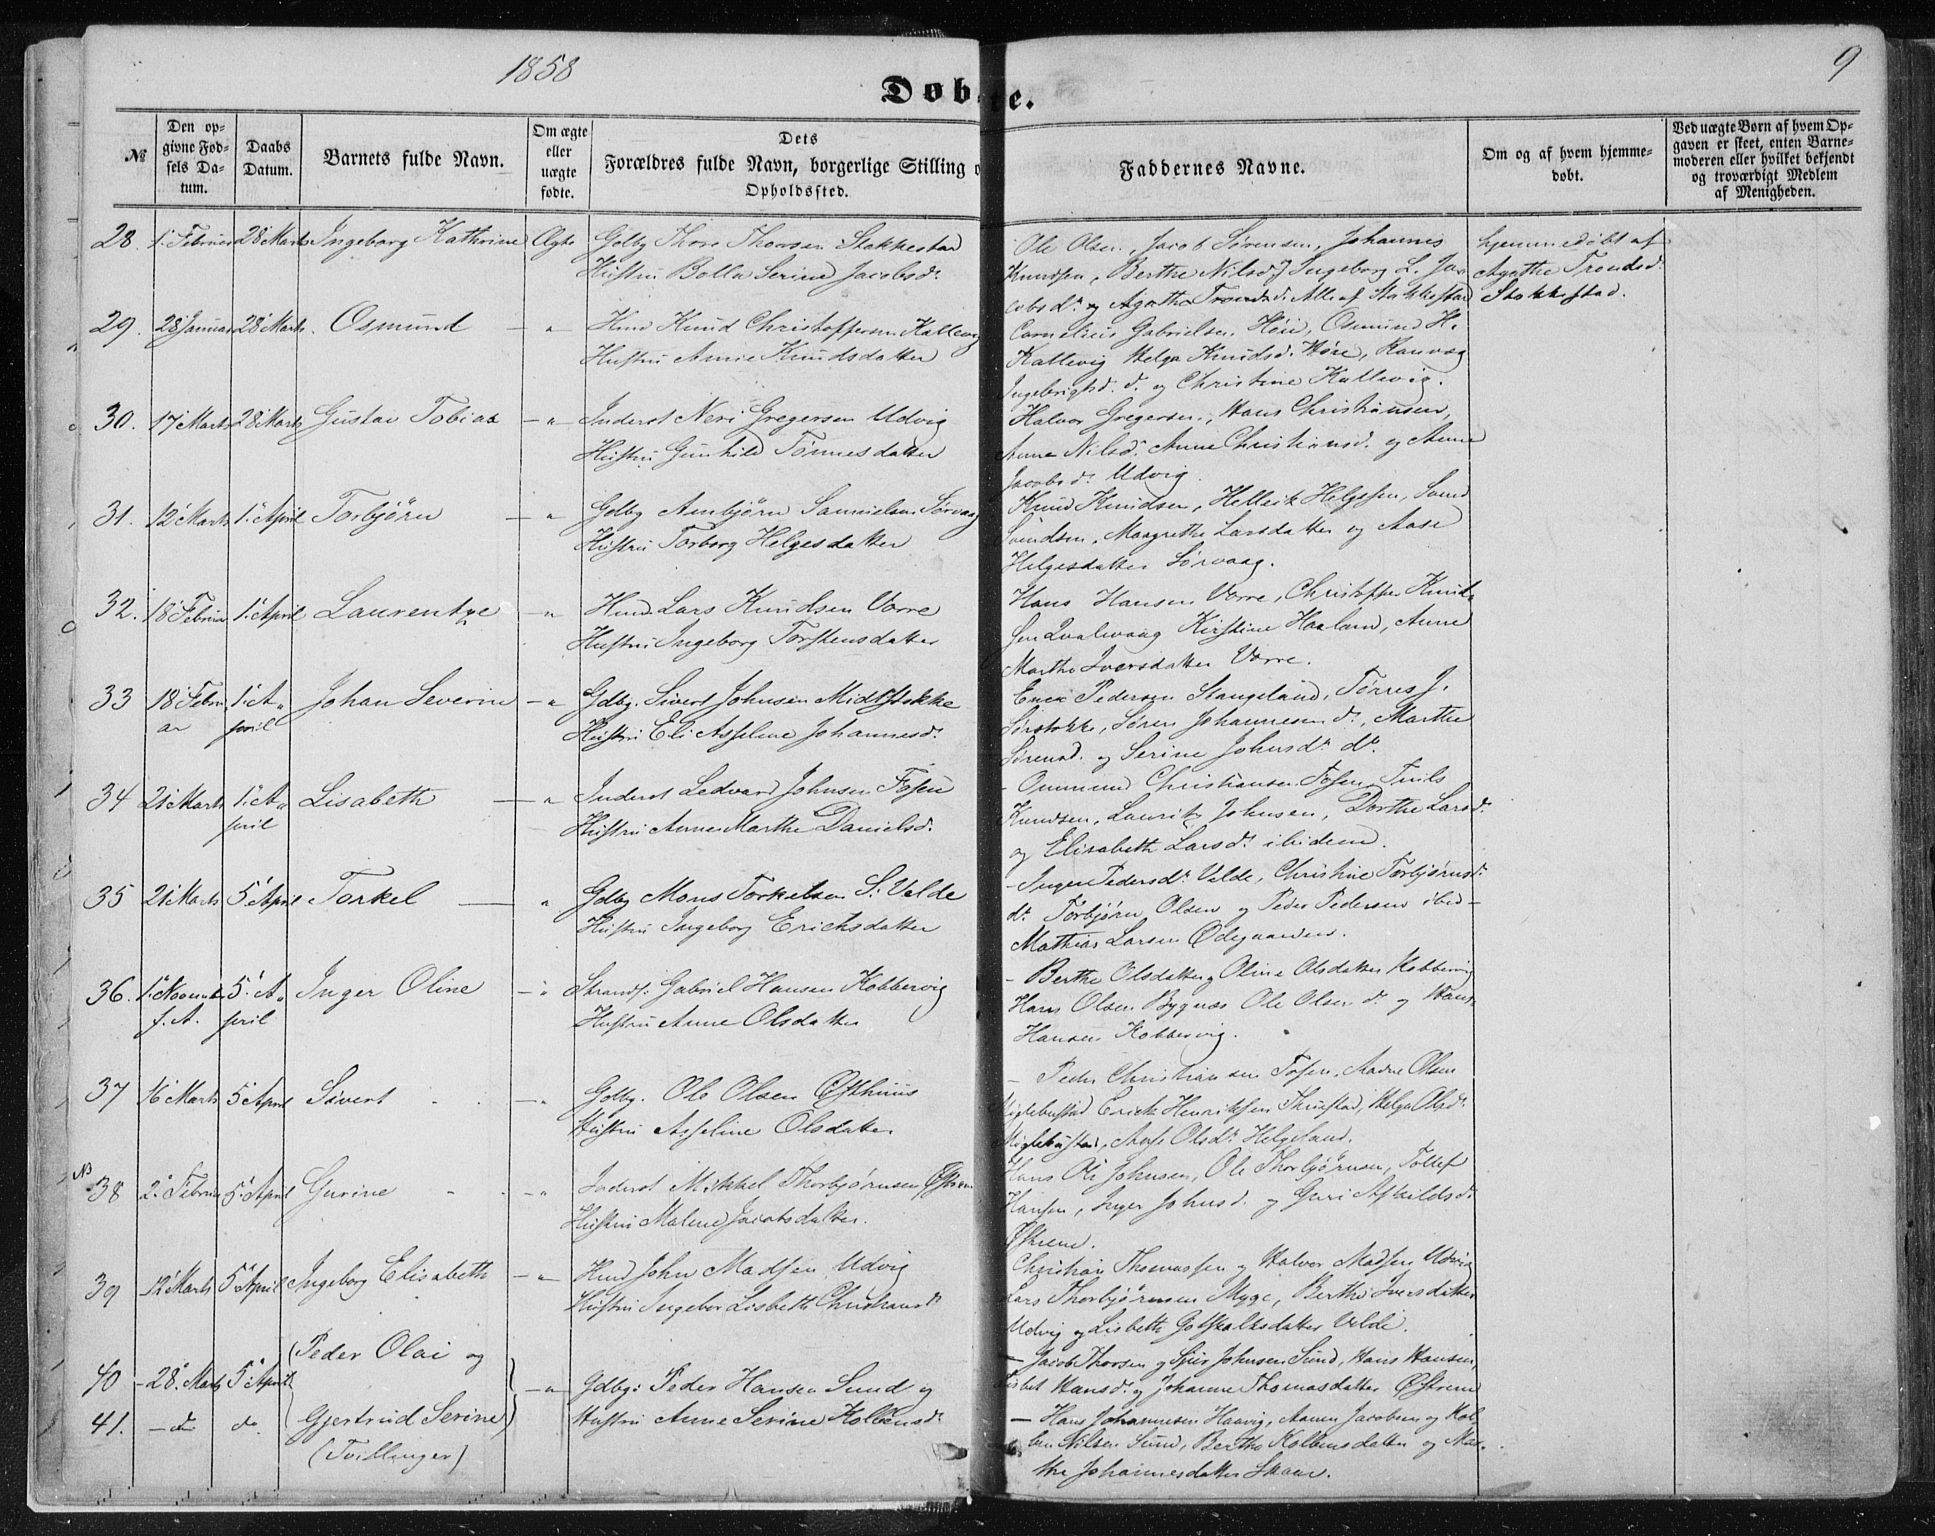 1858
9
Døbte.
№
Den op-
givne Fød-
sels Da-
tum.
Daabs
Datum.
Barnets fulde Navn.
Om ægte
eller
uægte
fødte.
Dets
Forældres fulde Navn, borgerlige Stilling o
Opholdssted.
Faddernes Navne.
Om og af hvem hjemme-
døbt.
Ved uægte Børn af hvem Op-
gaven er skeet, enten Barne-
moderen eller hvilket bekjendt
og troværdigt Medlem
af Menigheden.
28. 1. Februar 28 Marts Ingeborg Kathrine Ægte Gdbg Thore Thorsen Stokkestad
Hustru Bolla Serine Jacobsd.
Ole Olsen, Jacob Sørensen, Johannes
Knudsen, Berthe Nilsd, Ingeborg L. Ja-
cobsdr. og Agathe Trondsd. Alle af Stokkestad
hjemmedøbt af
Agathe Trondsd.
Stokkestad.
29. 28 Januar 28 Marts. Osmund – " Hmd Knud Christoffersen Kallevig
Hustru Anne Knudsdatter
Cornelius Gabrielsen Høie, Osmund H.
Kallevig Helga Knudsd. Høie, Ranvaag
Ingebrigtsd. d. og Christine Kallevig.
30. 17 Marts 28 Marts Gustav Tobias – " Inderst Neri Gregersen Udvig
Hustru Gunhild Tønnesdatter
Halvor Gregersen, Hans Christiansen,
Anne Nilsd. Anne Christiansd. og Anne
Jacobsdr. Udvig.
31. 12 Marts 1. April Torbjørn – " Gdbg Ambjørn Samuelsen Sørvaag
Hustru Torborg Helgesdatter
Knud Knudsen, Hellerik Helgesen, Svend
Svendsen, Margrethe Larsdatter og Aase
Helgesdatter Sørvaag.
32. 18 Februar 1. April Laurentze – " Hmd Lars Knudsen Vorre
Hustru Ingeborg Torstensdatter
Hans Hansen Vorre, Christopher Knud-
sen Qvalevaag Kirstine Haaland, Anne
Marthe Iversdatter Vorre.
33 18 Febru 1. A- Johan Severin – " Gdbg. Sivert Johnsen Midtstokke
ar pril Hustru Eli Asseline Johannesd.
Erik Pedersen Stangeland, Tørres J.
Sørstokke, Søren Johannesen dr., Marthe
Sørensd. og Serine Johnsdr. dr.
34 21 Marts 1. A- Lisabeth – " Inderst Ledvard Johnsen Fosen
pril Hustru Anne Marthe Danielsd.
– Ommund Christiansen Fosen, Truls
Knudsen, Lauritz Johnsen, Dorthe Larsd.
og Elisabeth Larsdr. ibidem.
35 21 Marts 5 April Torkel – " Gdbg Mons Torkelsen S. Velde
Hustru Ingeborg Erichsdatter
– Inger Pedersdr. Velde, Christine Torbjørnsd.
dr. Torbjørn Olsen og Peder Pedersen ibid–
Mathias Larsen Ødegaarden.
36. 1. Novemb. 5. A- Inger Oline – " Strands. Gabriel Hansen Kobbervig
f. A. pril Hustru Anne Olsdatter
– Berthe Olsdatter og Oline Olsdatter Kobbervig
Hans Olsen Bygnæs Ole Olsen dr. og Hans
Hansen Kobbervig.
37 16 Marts 5 April Sivert – " Gdbg. Ole Olsen Østhuus
Hustru Asseline Olsdatter.
– Peder Christiansen Fosen, Aadne Olsen
Miglebustad Erick Henriksen Thuestad, Helga Olsdr.
Miglebustad, Aase Olsdr. Helgeland.
NB 38 2. Februar 5 April Gurine – " Inderst Mikkel Thorbjørnsen Østrem
Hustru Malene Jacobsdatter.
Hans Ole Johnsen, Ole Thorbjørnsen, Tollef
Hansen, Inger Johnsd. og Guri Askildsd.
Østrem.
39 12 Marts 5 April Ingeborg Elisabeth – " Hmd John Madsen Udvig
Hustru Ingebor Lisbeth Christiansdr.
Christian Thomassen og Halvor Madsen Udvig
Lars Thorbjørnsen Myge, Berthe Iversdatter
Udvig og Lisbeth Gotskalksdatter Velde.
40 – 28. Marts 5 April (Peder Olai og – " Gdbg. Peder Hansen Sund og
41. – dr. do. Gjertrud Serine) Hustru Anne Serine Kolbensdr.
(Tvillinger)
– Jacob Thorsen og Sjur Johnsen Sund, Hans Hansen,
Lisbet Hansdr. og Johanne Thomasdatter Østrem
– Hans Johannesen Haavig, Aanen Jacobsen og Kol-
ben Nilsen Sund, Berthe Kolbensdatter og Mar-
the Johannesdatter Skaar.